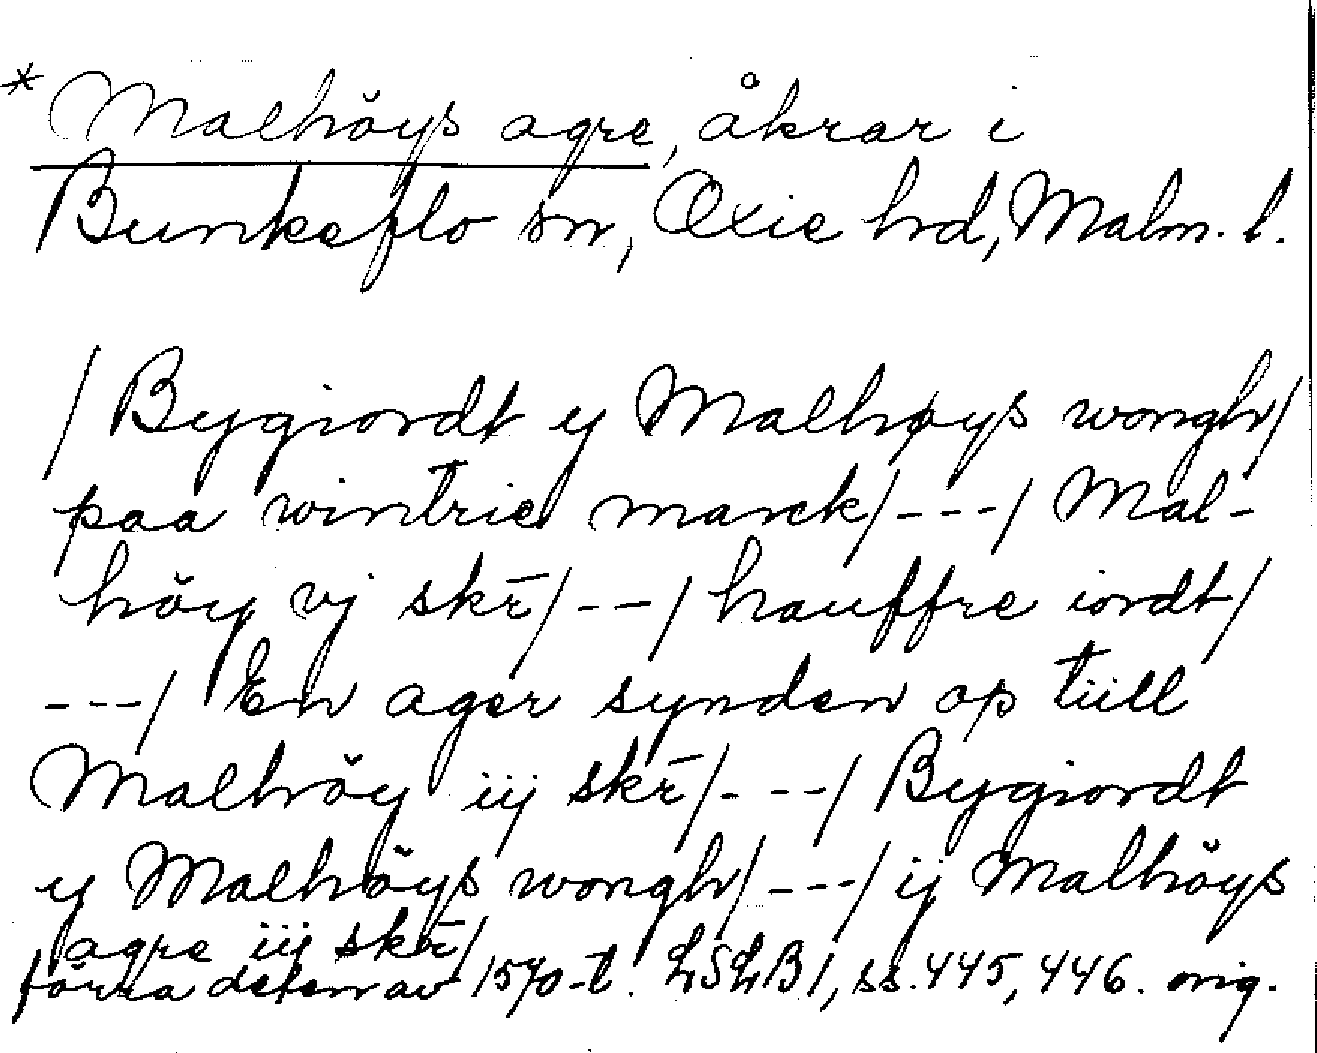 * Malhöys agre, åkrar i
Bunkeflo sn, Oxie hd, Malm. l.
/ Bygiordt y Malhøys wongh/
paa wintrie marck/---/ Mal-
höy vj skr̄/---/ hauffre iordt/
---/ En ager synden op tiill
Malhöy iij skr̄/---/ Bygiordt
y Malhöys wongh/---/ ij Malhöys
agre iij skr̄/
förra delen av 1570-t. LSLB1, ss. 445, 446. orig.